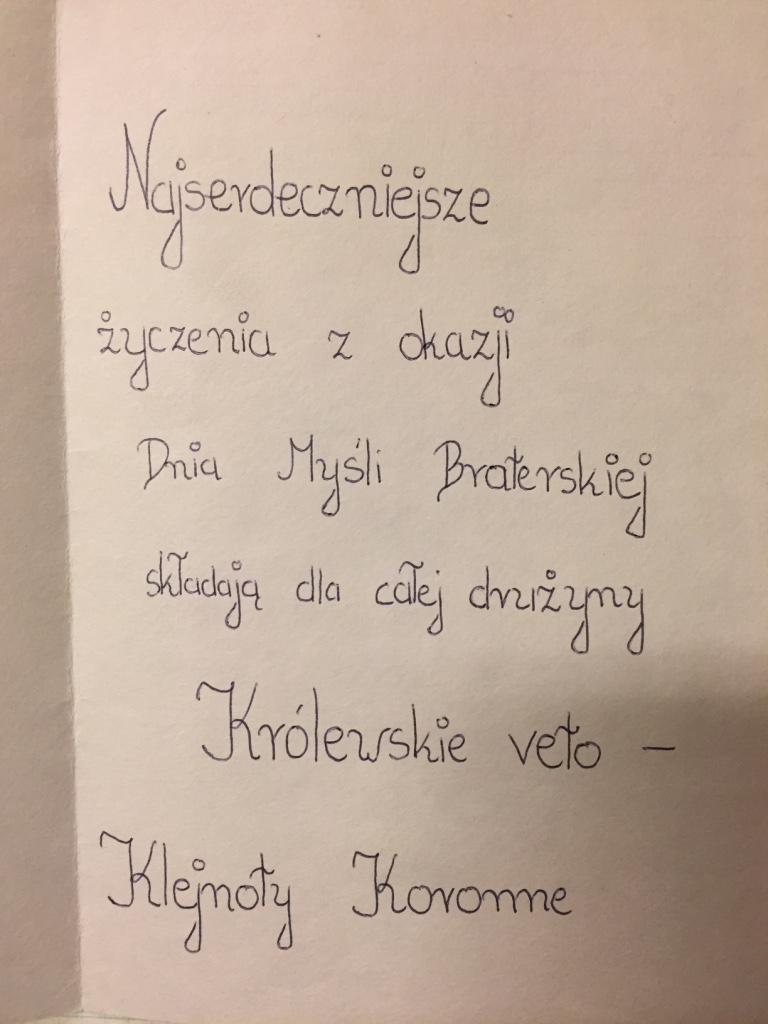 Najserdeczniejsze
życzenia z okazji
Dnia Myśli Braterskiej
składają dla całej drużyny
Królewskie veto –
Klejnoty Koronne